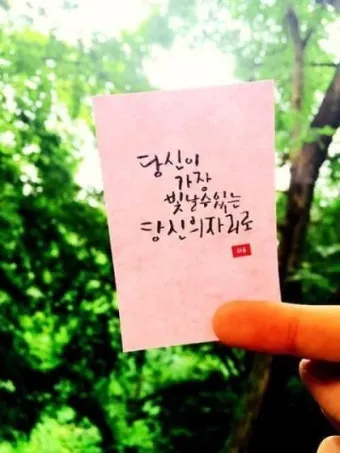 당신이
가장
빛날수있는
당신의자리로